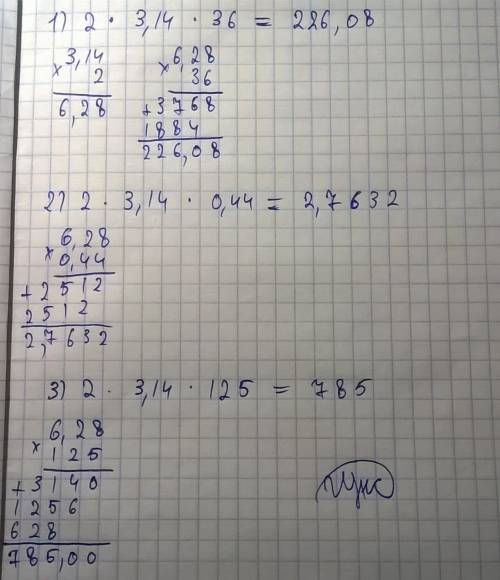 1) 2 · 3,14 · 36 = 226,08
3,14 6,28
× 2 × 36
6,28 + 3768
1884
226,08
2) 2 · 3,14 · 0,44 = 2,7632
6,28
× 0,44
+ 2512
2512
2,7632
3) 2 · 3,14 · 125 = 785
6,28
× 125
+ 3140
1256
628
785,00